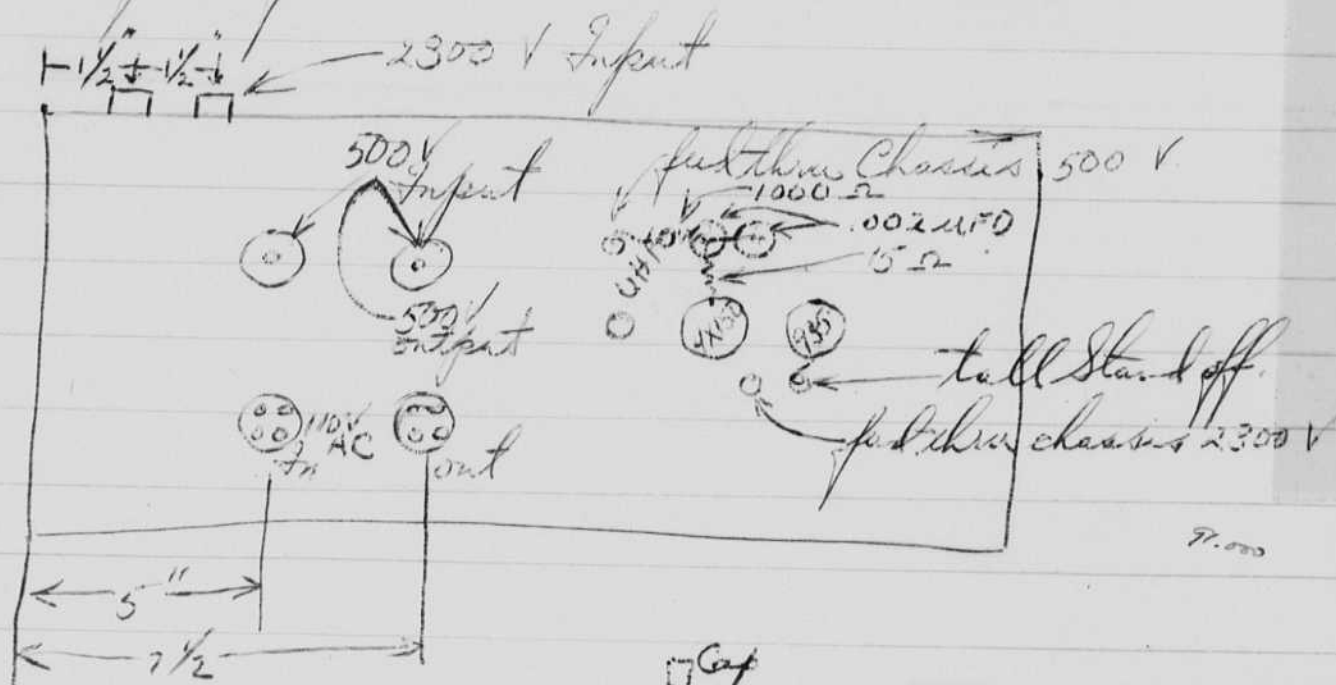 1 1/2" 1 1/2"
2300 V Input
500V Input
feed thru Chassis 500 V.
1000 Ω
.002 MFD
15 Ω
UHF
500V output
4X150
935
tall Stand off.
feed thru chassis 2300 V
110V AC In
out
5"
7 1/2
Cap